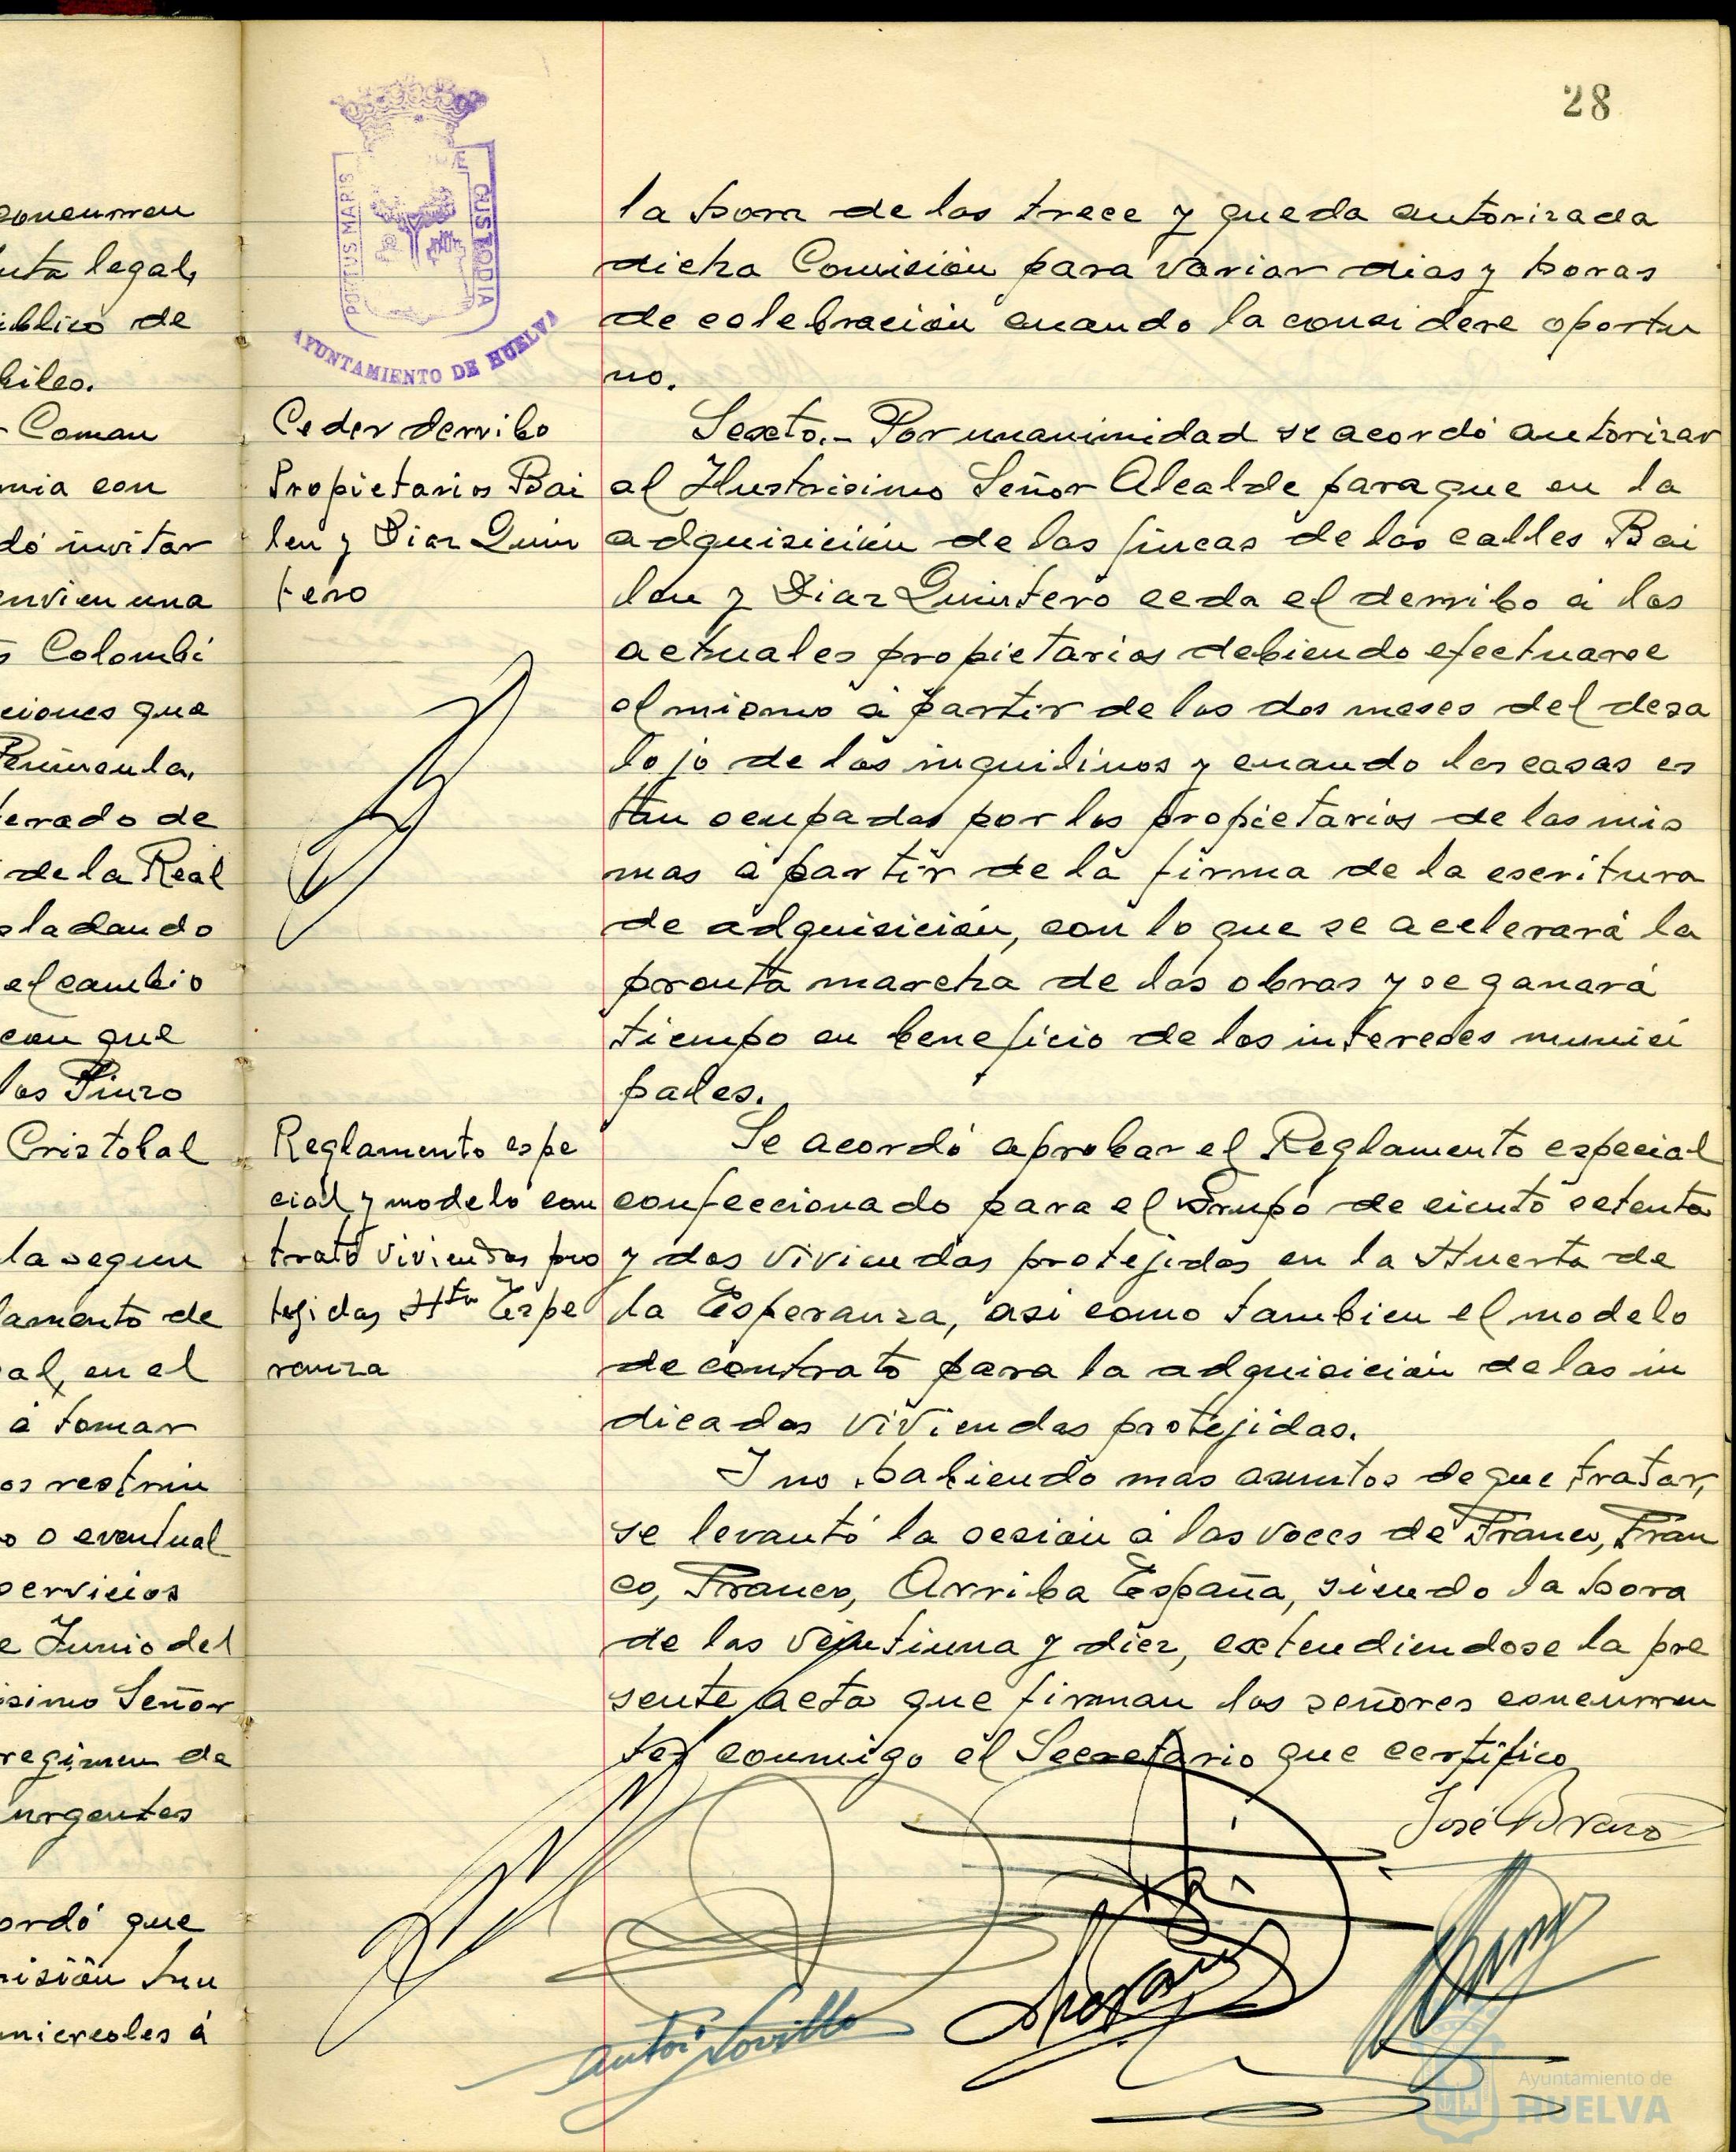 28
PORTUS MARIS
CUSTODIA
AYUNTAMIENTO DE HUELVA
concurren
legal,
de
Coman
mia con
dó invitar
envien una
Colombi
ciones que
Peninsula,
terado de
de la Real
sladando
el cambio
con que
los Pinzo
Cristobal
la segun
lamento de
al, en el
á tomar
os restrin
o eventual
servicios
e Junio del
isimo Señor
regimen de
urgentes
ordó que
misión
miercoles á
Ceder derribo
Propietarios Bai
len y Diaz Quin
tero
Reglamento espe
cial y modelo con
trato viviendas pro
tejidas Hta Espe
ranza
la hora de las trece y queda autorizada
dicha Comisión para variar dias y horas
de celebración cuando la considere oportu
no.
Sexto.- Por unanimidad se acordó autorizar
al Ilustrisimo Señor Alcalde para que en la
adquisición de las fincas de las calles Bai
len y Diaz Quintero ceda el derribo á los
actuales propietarios debiendo efectuarse
el mismo á partir de los dos meses del desa
lojo de los inquilinos y cuando las casas es
tan ocupadas por los propietarios de las mis
mas á partir de la firma de la escritura
de adquisición, con lo que se acelerará la
pronta marcha de las obras y se ganará
tiempo en beneficio de los intereses munici
pales.
Se acordó aprobar el Reglamento especial
confeccionado para el Grupo de ciento setenta
y dos viviendas protejidas en la Huerta de
la Esperanza, asi como tambien el modelo
de contrato para la adquisición de las in
dicadas viviendas protejidas.
I no habiendo mas asuntos de que tratar,
se levantó la sesión á las voces de Franco, Fran
co, Franco, Arriba España, siendo la hora
de las veintiuna y diez, extendiendose la pre
sente acta que firman los señores concurren
tes conmigo el Secretario que certifico
José Bravo
Ayuntamiento de
HUELVA